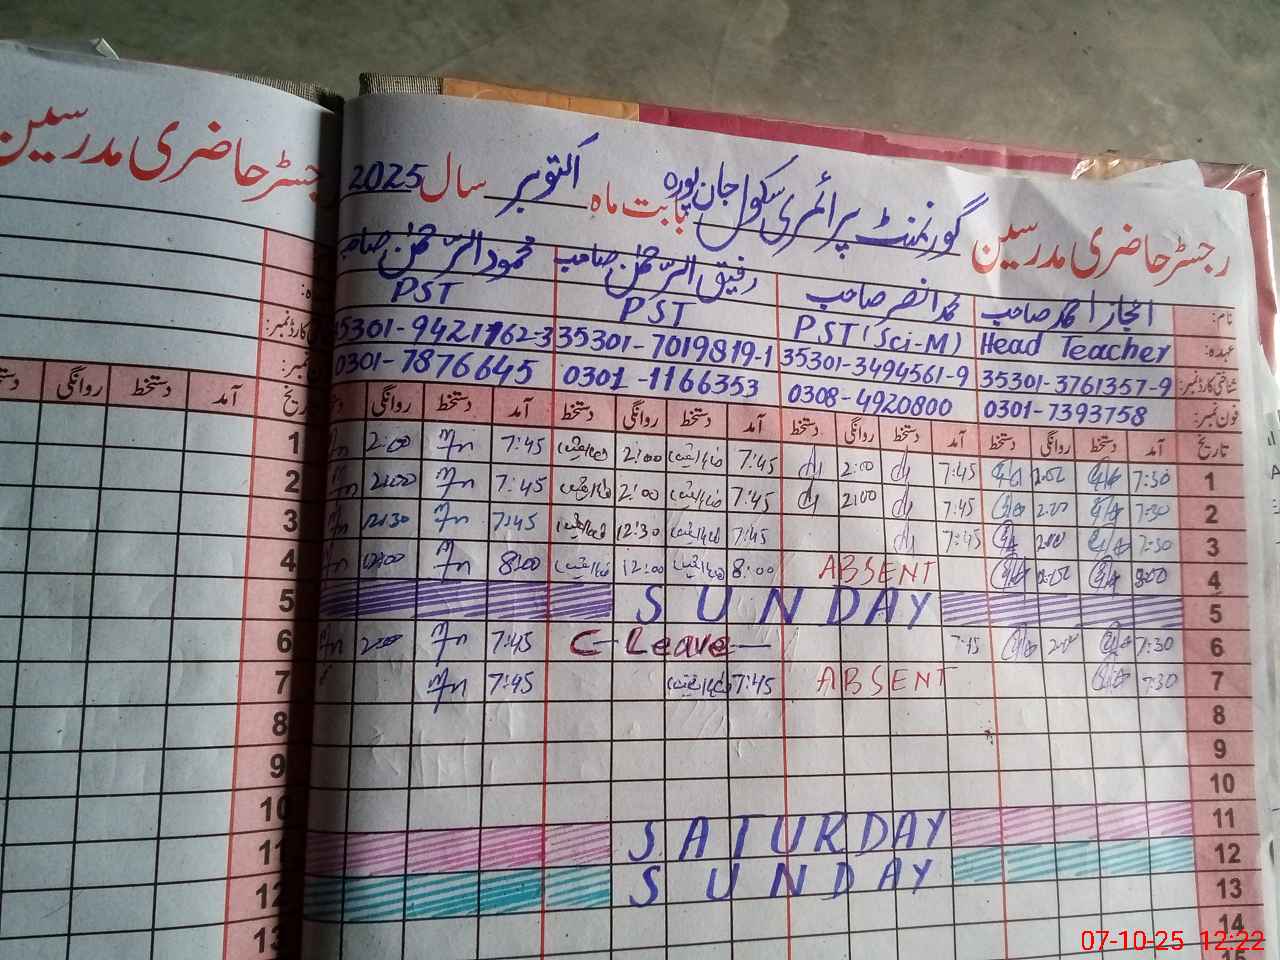 رجسٹر حاضری مدرسین
رجسٹر حاضری مدرسین گورنمنٹ پرائمری سکول جان پورہ بابت ماہ اکتوبر سال 2025
نام: اعجاز احمد صاحب محمد انصر صاحب رفیق الرحمٰن صاحب محمود الرحمٰن صاحب
عہدہ: Head Teacher PST (Sci-M) PST PST
شناختی کارڈ نمبر: 35301-3761357-9 35301-3494561-9 35301-7019819-1 35301-9421762-3
فون نمبر: 0301-7393758 0308-4920800 0301-1166353 0301-7876645
تاریخ آمد دستخط روانگی دستخط آمد دستخط روانگی دستخط آمد دستخط روانگی دستخط آمد دستخط روانگی تاریخ آمد دستخط روانگی
1 7:30 7:45 2:00 7:45 2:00 7:45 2:00 1
2 7:30 7:45 2:00 7:45 2:00 7:45 2:00 2
3 7:30 7:45 7:45 12:30 7:45 12:30 3
4 8:00 ABSENT 8:00 12:00 8:00 12:00 4
5 SUNDAY 5
6 7:30 7:45 C-Leave 7:45 2:00 6
7 7:30 ABSENT 7:45 7:45 7
8 8
9 9
10 10
11 SATURDAY 11
12 SUNDAY 12
13 13
14
15
07-10-25 12:22